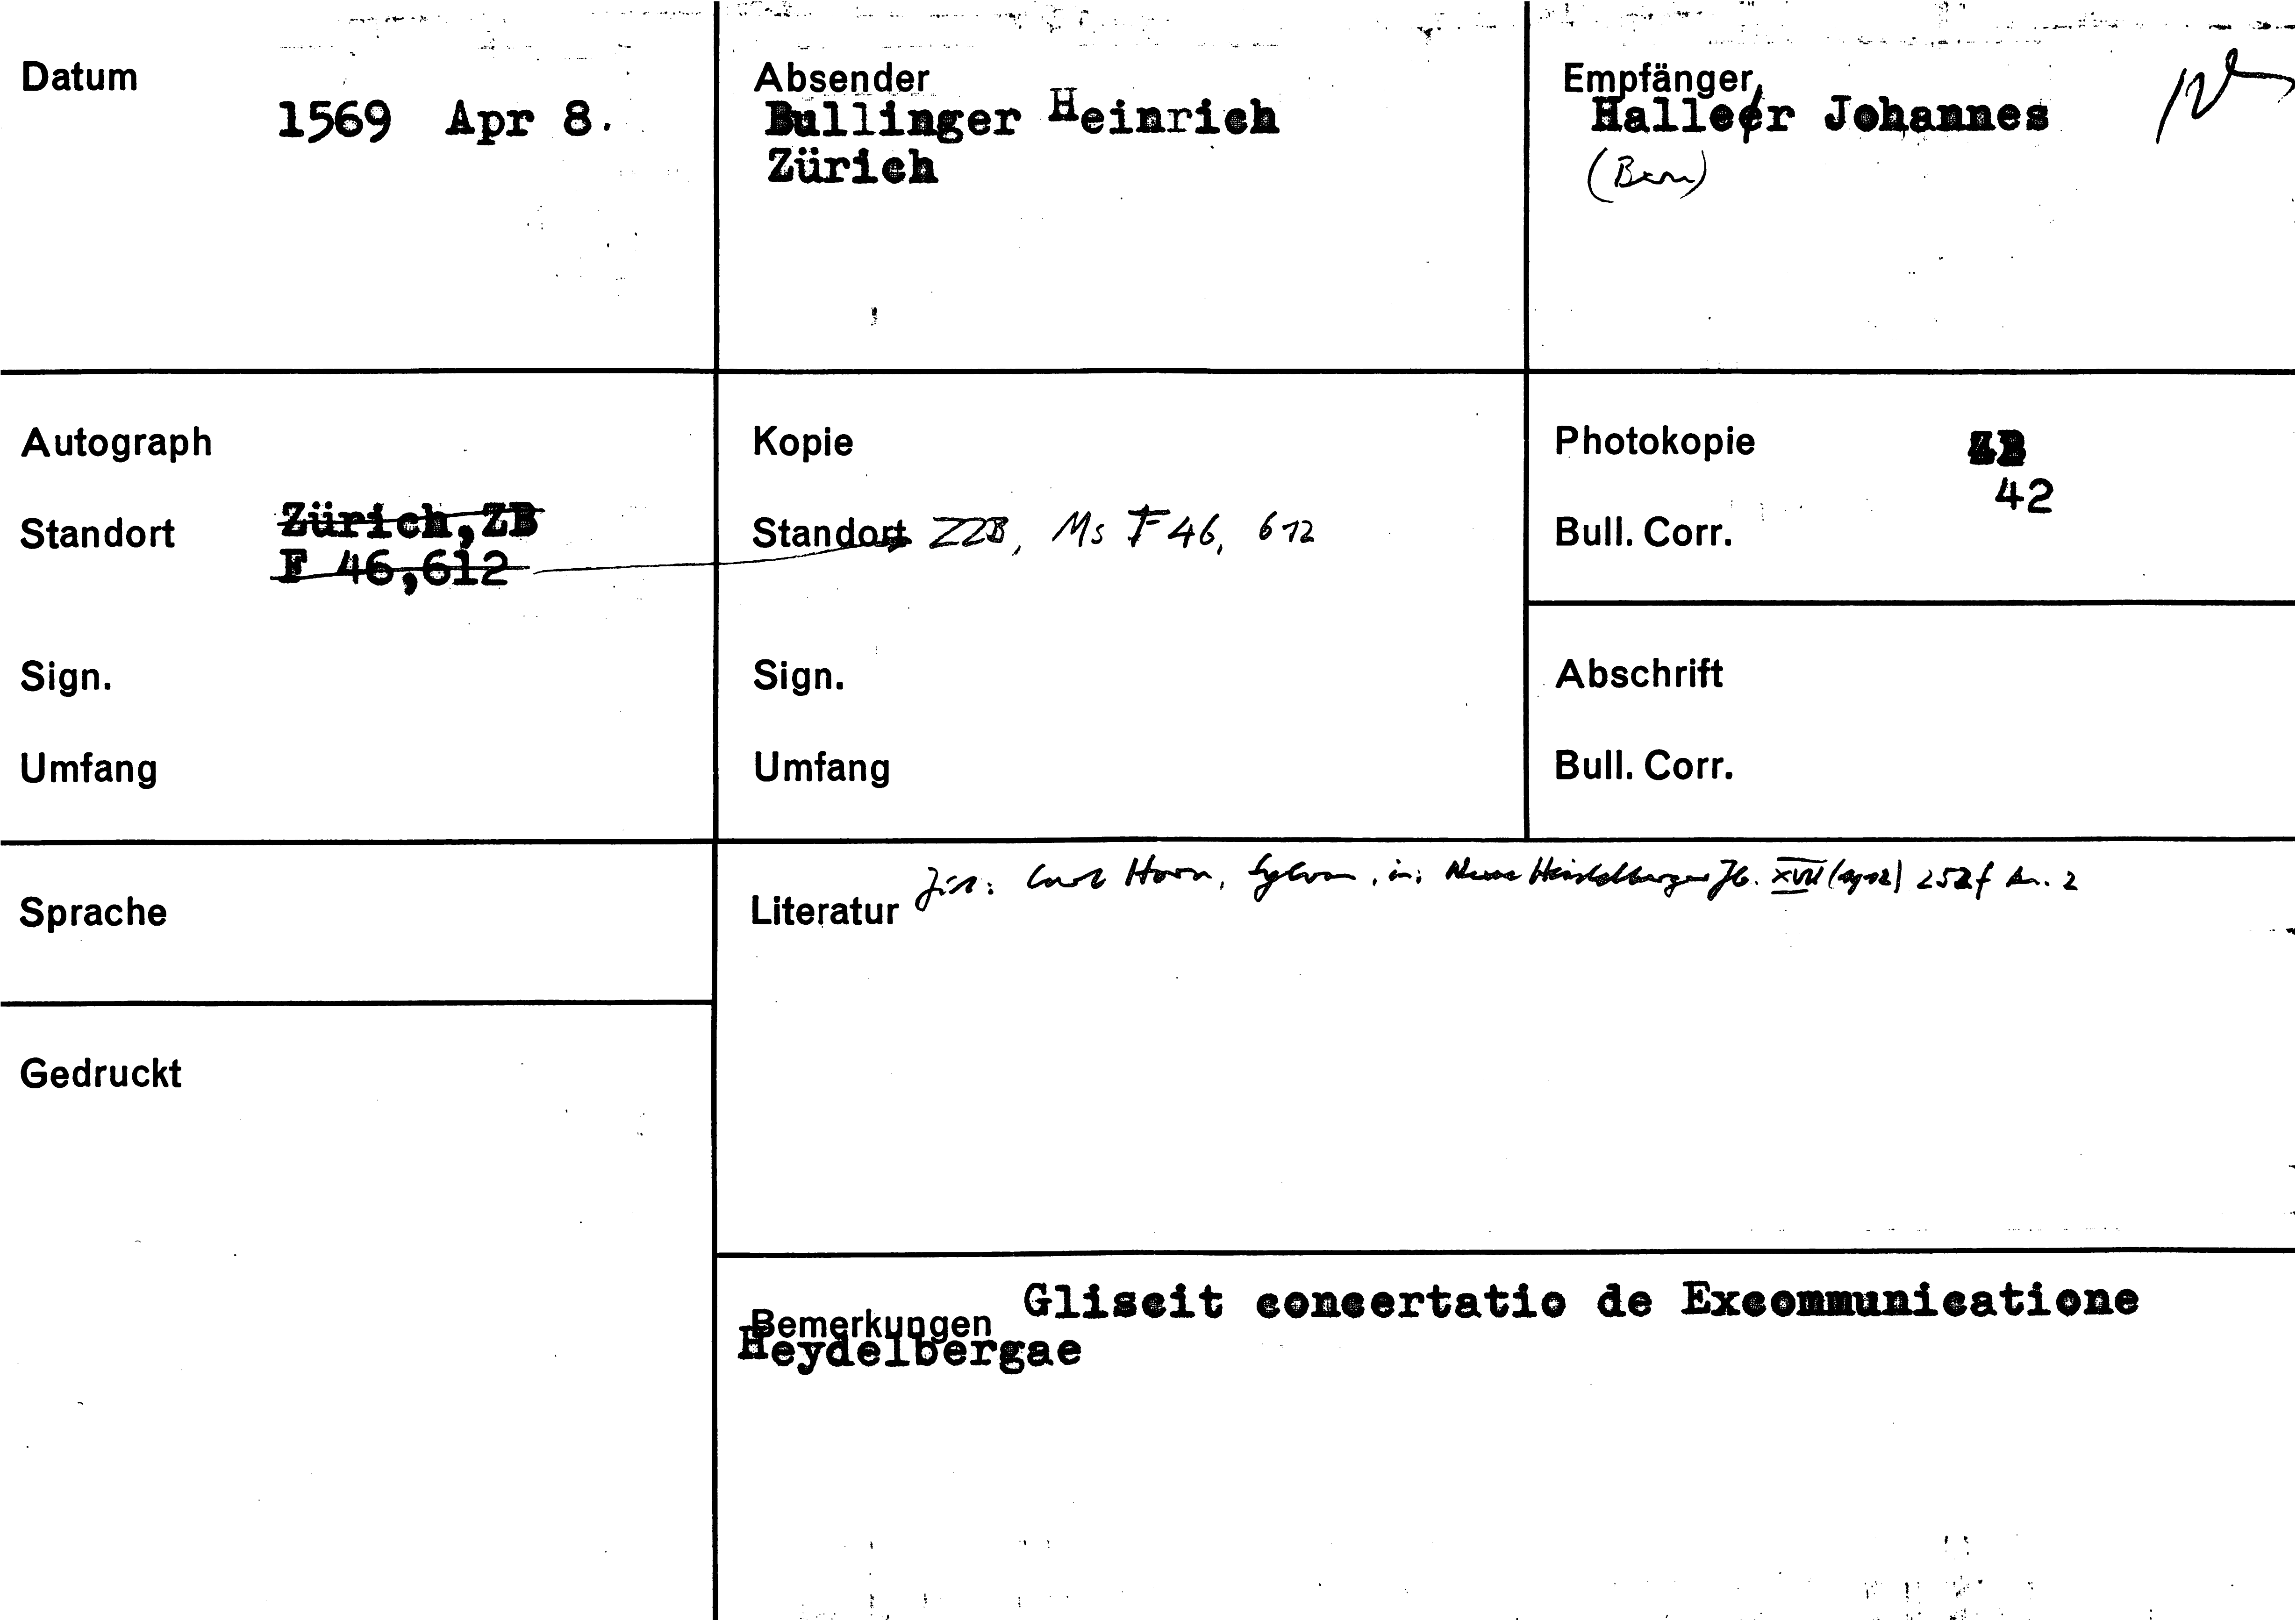 Datum
1569 Apr 8.
Absender
Bullinger Heinrich
Zürich
Empfänger
Haller Johannes
(Bern)
Autograph
Standort Zürich,ZB
F 46,612
Sign.
Umfang
Kopie
Standort ZZB, Ms F 46, 612
Sign.
Umfang
Photokopie ZB
42
Bull. Corr.
Abschrift
Bull. Corr.
Sprache
Literatur Zit.: Carl Horn, Sylvan, in: Neue Heidelberger Jb. XVII 252f An. 2
Gedruckt
Bemerkungen Gliscit concertatio de Excommunicatione
Heydelbergae